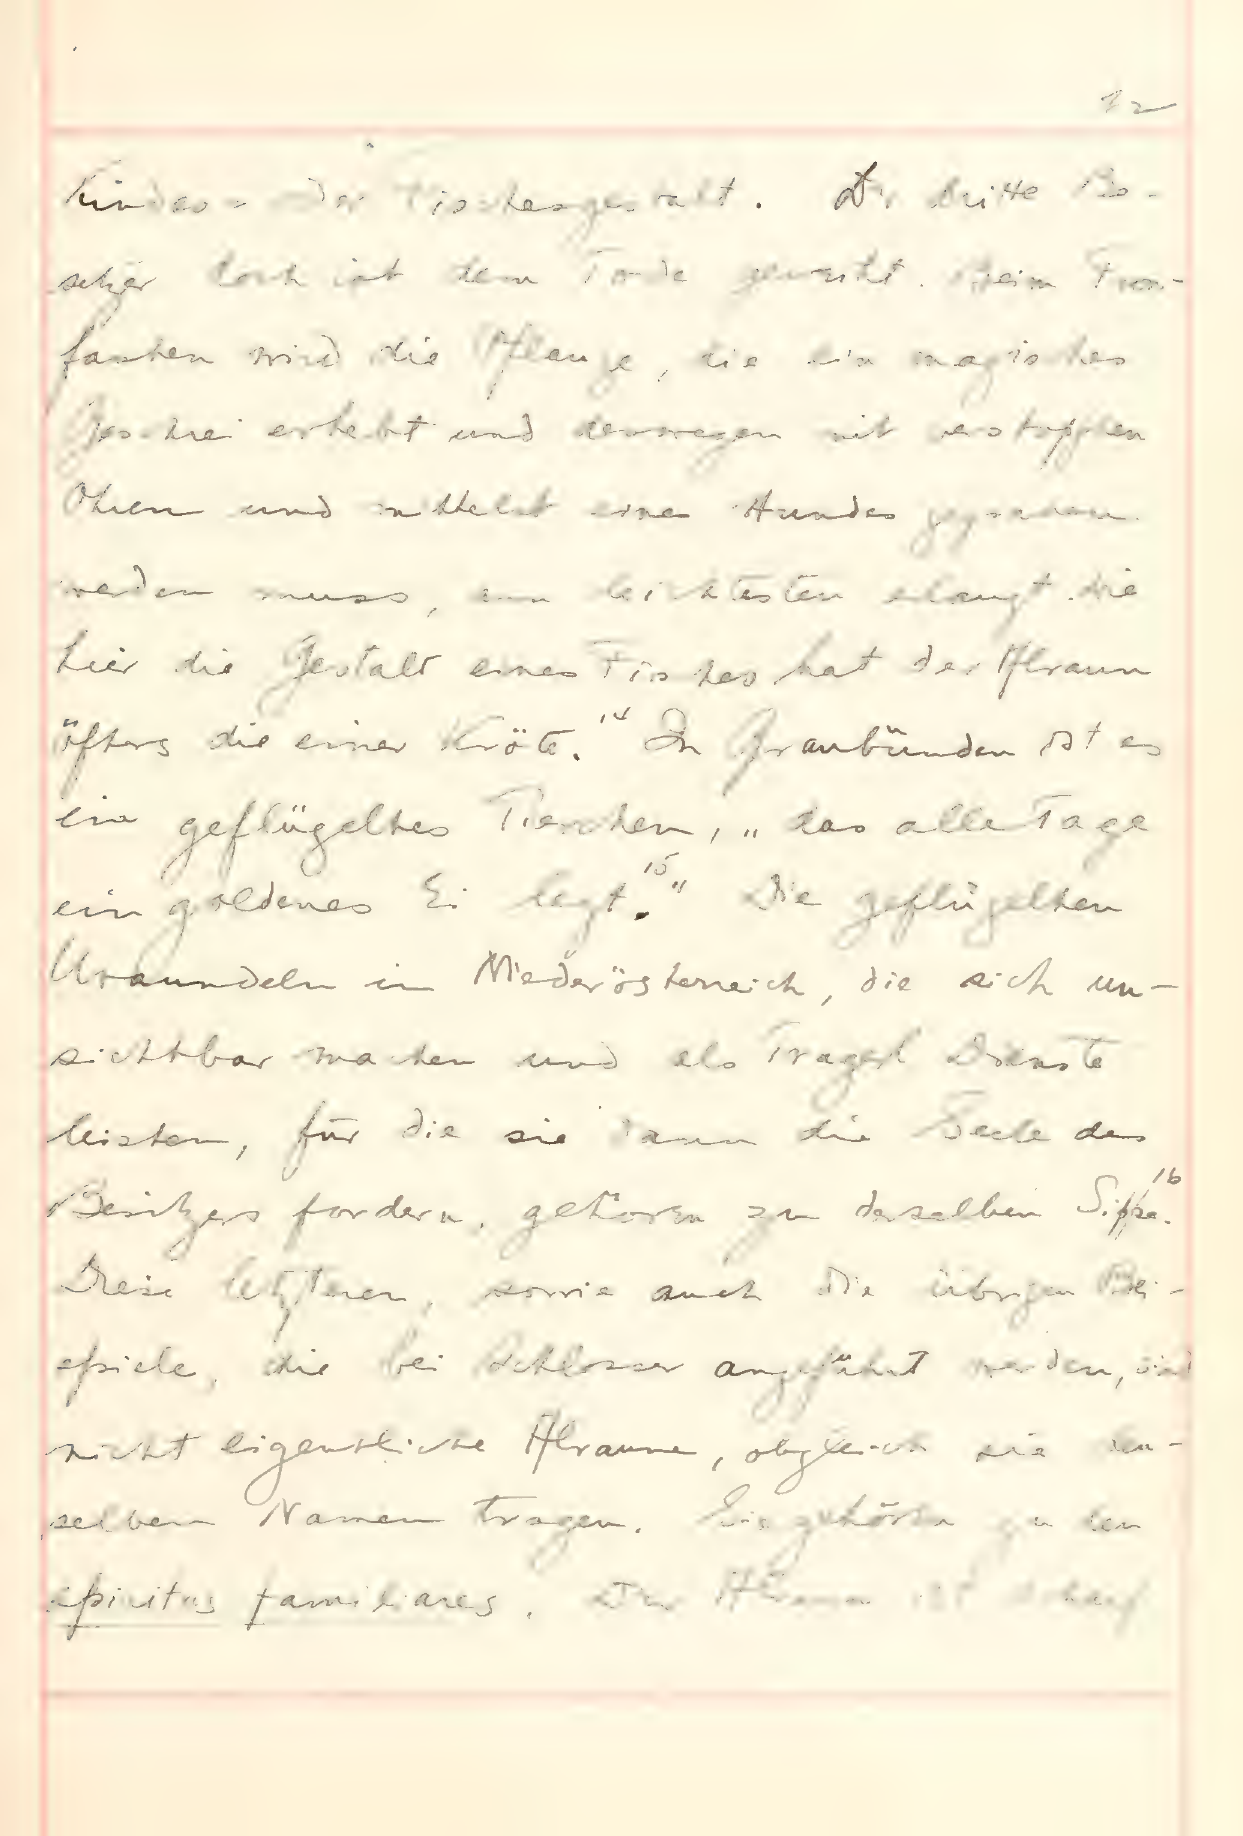 12
Kindes- oder Fischesgestalt. Der dritte Be-
sitzer doch ist dem Tode geweiht. Beim Fron-
fasten wird die Pflanze, die ein magisches
Geschrei erhebt und deswegen mit verstopften
Ohren und mittelst eines Hundes gegraben
werden muss, am leichtesten erlangt. Wie
hier die Gestalt eines Fisches hat der Alraun
öfters die einer Kröte.14 In Graubünden ist es
ein geflügeltes Tierchen, „das alle Tage
ein goldenes Ei legt.15" Die geflügelten
Uraundeln in Niederösterreich, die sich un-
sichtbar machen und als Tragerl Dienste
leisten, für die sie dann die Seele des
Besitzers fordern, gehören zu derselben Sippe.16
Diese letzteren, sowie auch die übrigen Bei-
spiele, die bei Schlosser angeführt werden, sind
nicht eigentliche Alraune, obgleich sie den-
selben Namen tragen. Sie gehören zu den
spiritus familiares. Der Alraun ist scharf